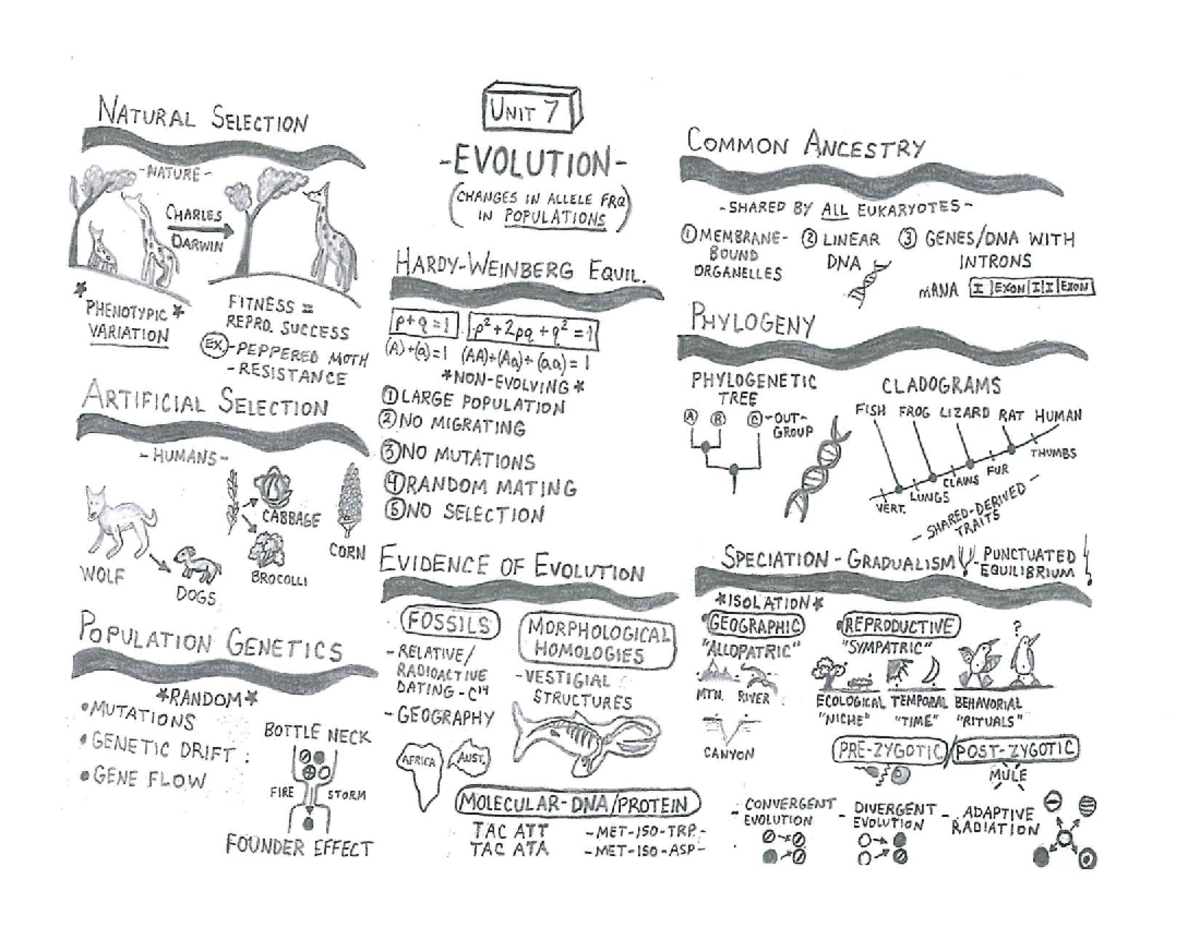 UNIT 7
-EVOLUTION-
(CHANGES IN ALLELE FRQ
IN POPULATIONS)
NATURAL SELECTION
-NATURE-
CHARLES
DARWIN
*PHENOTYPIC*
VARIATION
FITNESS =
REPRO. SUCCESS
EX.-PEPPERED MOTH
-RESISTANCE
ARTIFICIAL SELECTION
-HUMANS-
WOLF
DOGS
CABBAGE
BROCOLLI
CORN
POPULATION GENETICS
*RANDOM*
•MUTATIONS
•GENETIC DRIFT:
•GENE FLOW
BOTTLE NECK
FIRE STORM
FOUNDER EFFECT
HARDY-WEINBERG EQUIL.
p+q=1 p²+2pq+q²=1
(A)+(a)=1 (AA)+(Aa)+(aa)=1
*NON-EVOLVING*
①LARGE POPULATION
②NO MIGRATING
③NO MUTATIONS
④RANDOM MATING
⑤NO SELECTION
EVIDENCE OF EVOLUTION
FOSSILS
-RELATIVE/
RADIOACTIVE
DATING-C¹⁴
-GEOGRAPHY
AFRICA
AUST.
MORPHOLOGICAL
HOMOLOGIES
-VESTIGIAL
STRUCTURES
MOLECULAR-DNA/PROTEIN
TAC ATT -MET-ISO-TRP-
TAC ATA -MET-ISO-ASP-
COMMON ANCESTRY
-SHARED BY ALL EUKARYOTES-
①MEMBRANE-
BOUND
ORGANELLES
②LINEAR
DNA
③ GENES/DNA WITH
INTRONS
mRNA I EXON I I EXON
PHYLOGENY
PHYLOGENETIC
TREE
A B C-OUT-
GROUP
CLADOGRAMS
FISH FROG LIZARD RAT HUMAN
VERT.
LUNGS
CLAWS
FUR
THUMBS
-SHARED-DERIVED-
TRAITS
SPECIATION-GRADUALISM -PUNCTUATED
EQUILIBRIUM
*ISOLATION*
•GEOGRAPHIC
"ALLOPATRIC"
MTN. RIVER
CANYON
•REPRODUCTIVE
"SYMPATRIC"
?
ECOLOGICAL TEMPORAL BEHAVORIAL
"NICHE" "TIME" "RITUALS"
PRE-ZYGOTIC/POST-ZYGOTIC
MULE
-CONVERGENT
EVOLUTION
-DIVERGENT
EVOLUTION
-ADAPTIVE
RADIATION